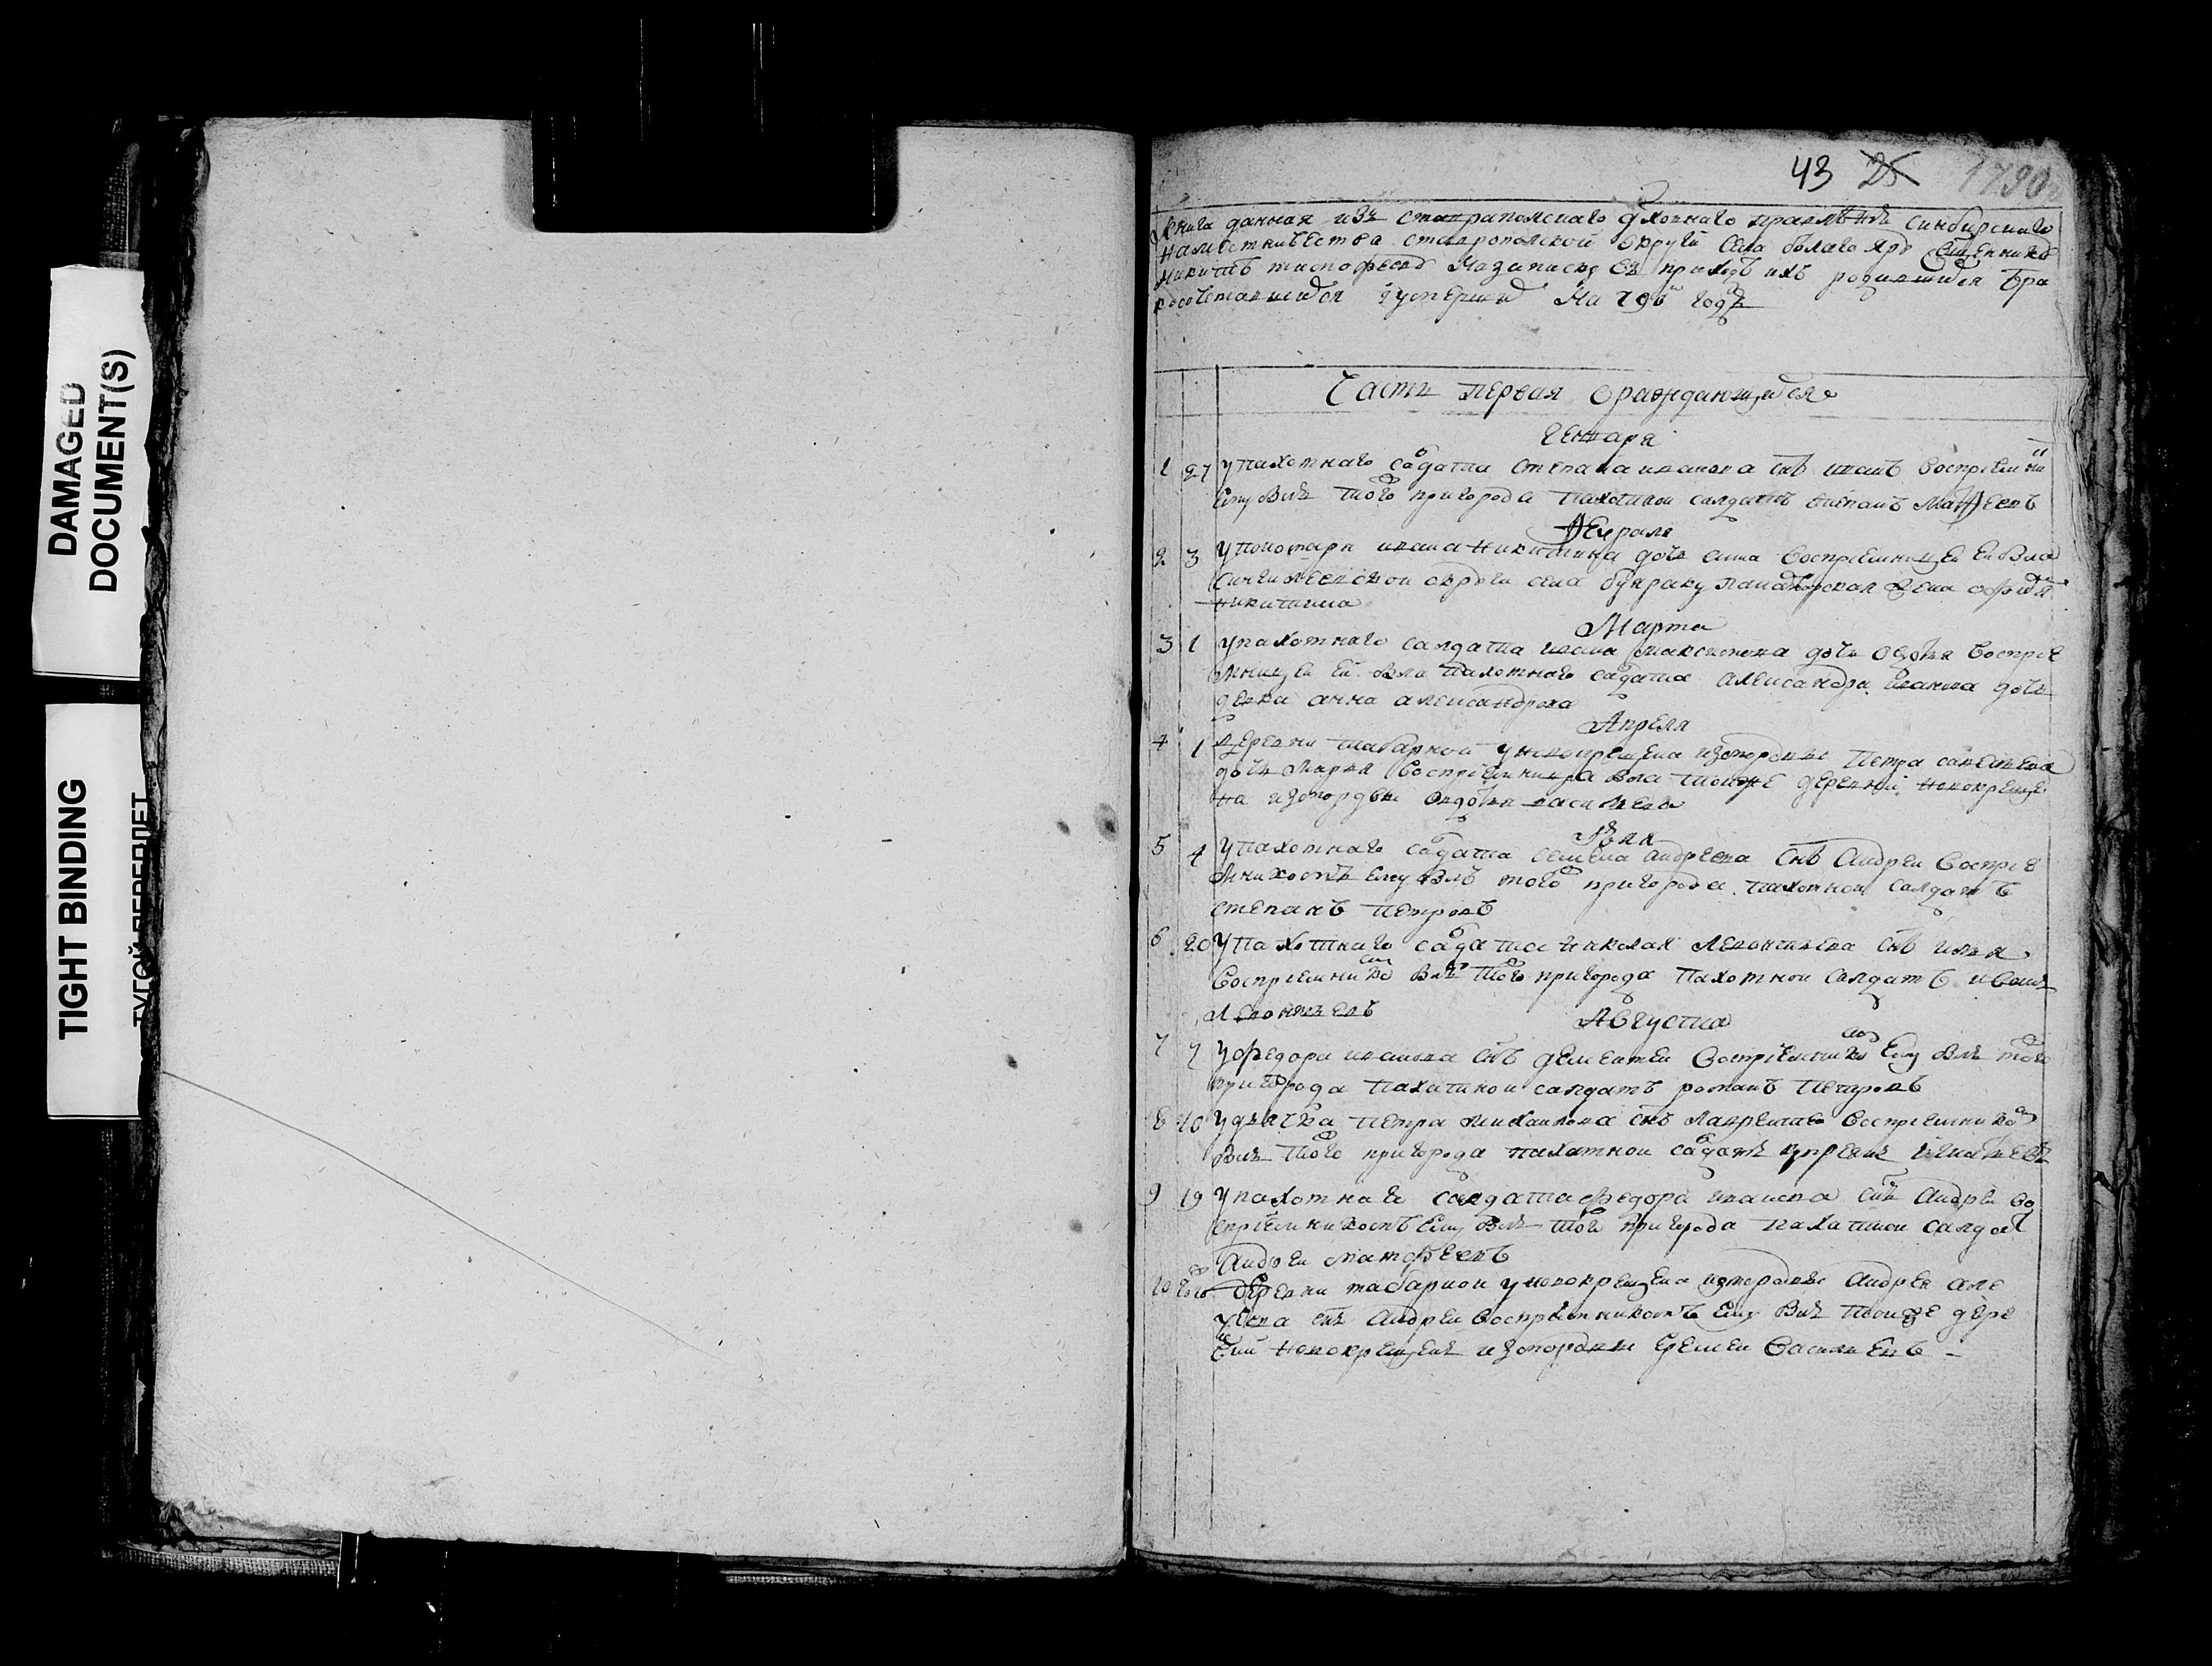 DAMAGED
DOCUMENT(S)
TIGHT BINDING
ТУГОЙ ПЕРЕПЛЕТ
43 25 1790
Книга данная изъ ставрапольскаго духовнаго правлѣнiя синбирскаго
намѣстничества ставропольской округи села
никитѣ тимофееву на записку въ приходѣ ихъ родившихся бра
косочетавшихся и умершихъ на 790 годъ
Часть первая ораждающихся
Генваря
1 27 У пахотнаго салдата степана иванова снъ иванъ восприемни
ему былъ того пригорода пахотной салдатъ степанъ Матфеевъ
Февраля
2 3 У пономаря ивана никитина дочь анна восприемницей ей была
округи села жена
никитина
Марта
3 1 У пахотнаго салдата ивана максимова дочь восприе
мницей ей была пахотнаго салдата александра иванова дочь
девка анна александрова
Апреля
4 1 деревни табарной у новокрещена измордвы Петра
дочь Марья восприемница была тоиже деревни новокреще
на измордвы авдотья василева
5 4 У пахотнаго салдата семена андреева снъ Андрей восприе
мникомъ ему былъ того пригорода пахотной салдатъ
степанъ петровъ
6 20 У пахотнаго салдата николая Леонтиева снъ илья
восприемникомъ былъ того пригорода пахотной салдатъ иванъ
Леонтьевъ
Августа
7 7 У федора иванова снъ дементей восприемникомъ ему былъ того
пригорода пахатной салдатъ романъ петровъ
8 10 У дьячка петра михаилова снъ лаврентей восприемникомъ
былъ того пригорода пахатной салдатъ игнатьевъ
9 19 У пахотнаго салдата федора иванова снъ андрей во
сприемникомъ ему былъ того пригорода пахатной салдат
андрей матфеевъ
10 того деревни табарной у новокрещена измордвы андрея але
снъ андрей восприемникомъ ему былъ тоиже дере
вни новокрещенъ измордвы еремей василевъ